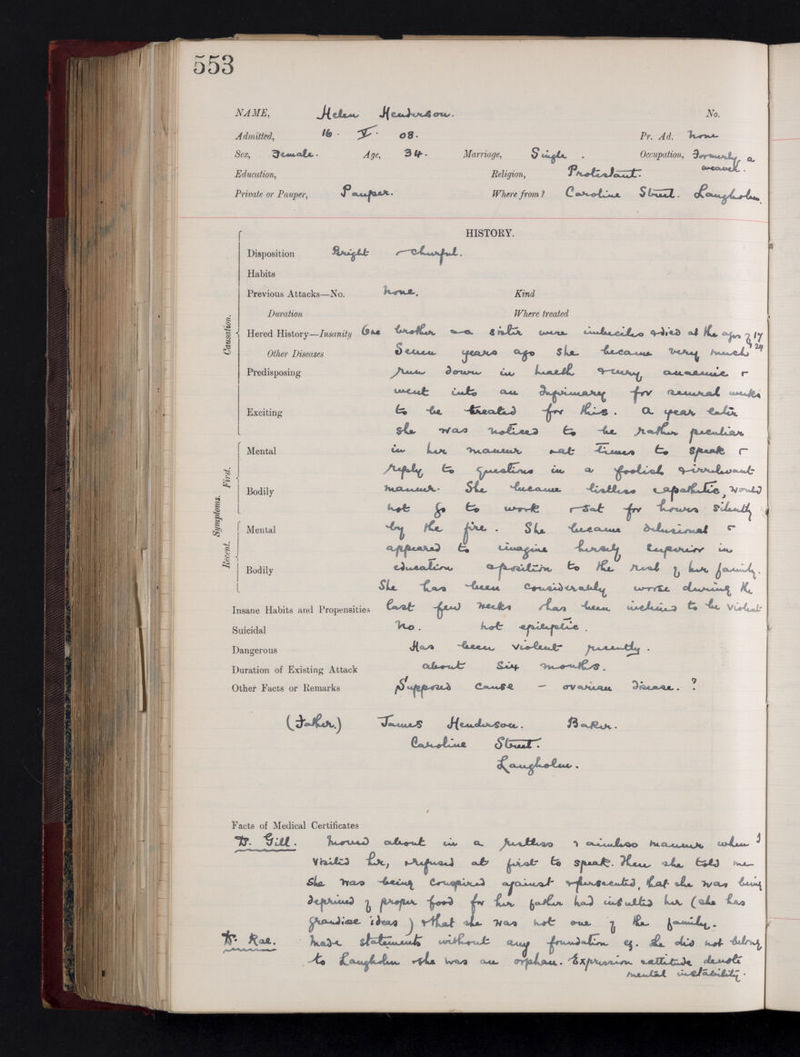 553
NAME, Helen Henderson. No.
Admitted, 16 · V · 08. Pr. Ad. None
Sex, Female. Age, 34. Marriage, Single. Occupation, Formerly a
weaver.
Education, Religion, Protestant.
Private or Pauper, Pauper. Where from? Caroline Street. Langholm.
HISTORY.
Causation.
Disposition Bright & cheerful.
Habits
Previous Attacks—No. None. Kind
Duration Where treated
Hered History—Insanity One brother & a sister were imbeciles & died at the ages of 17
& 24
Other Diseases Seven years ago she became very much
Predisposing run down in health & very anaemic &
went into an Infirmary for several weeks
Exciting to be treated for this. A year later
she was noticed to be rather peculiar
Symptoms. First.
Mental in her manner & at times to speak &
reply to questions in a foolish & irrelevant
Bodily manner. She became listless & apathetic, would
not go to work & sat for hours silently
Recent.
Mental by the fire. She became delusional &
appeared to imagine herself superior in
Bodily education & position to the rest of her family.
She has been considerably worse during the
Insane Habits and Propensities last few weeks & has been inclined to be violent
Suicidal No. Not epileptic.
Dangerous Has been violent recently.
Duration of Existing Attack about six months.
Other Facts or Remarks Supposed cause - ovarian disease. ?
(Father) James Henderson. Baker.
Caroline Street.
Langholm.
Facts of Medical Certificates
Dr. Gill. Moved about in a restless & aimless manner when I
visited her, & refused at first to speak. Then she told me
she was being conspired against & persecuted, that she was being
deprived of proper food for her father had insulted her (she has
grandiose ideas) & that she was not one of the family.
Dr. Rae. Made statements without any foundation eg. she did not belong
to Langholm & she was an orphan. Expression & attitude denote
mental instability.